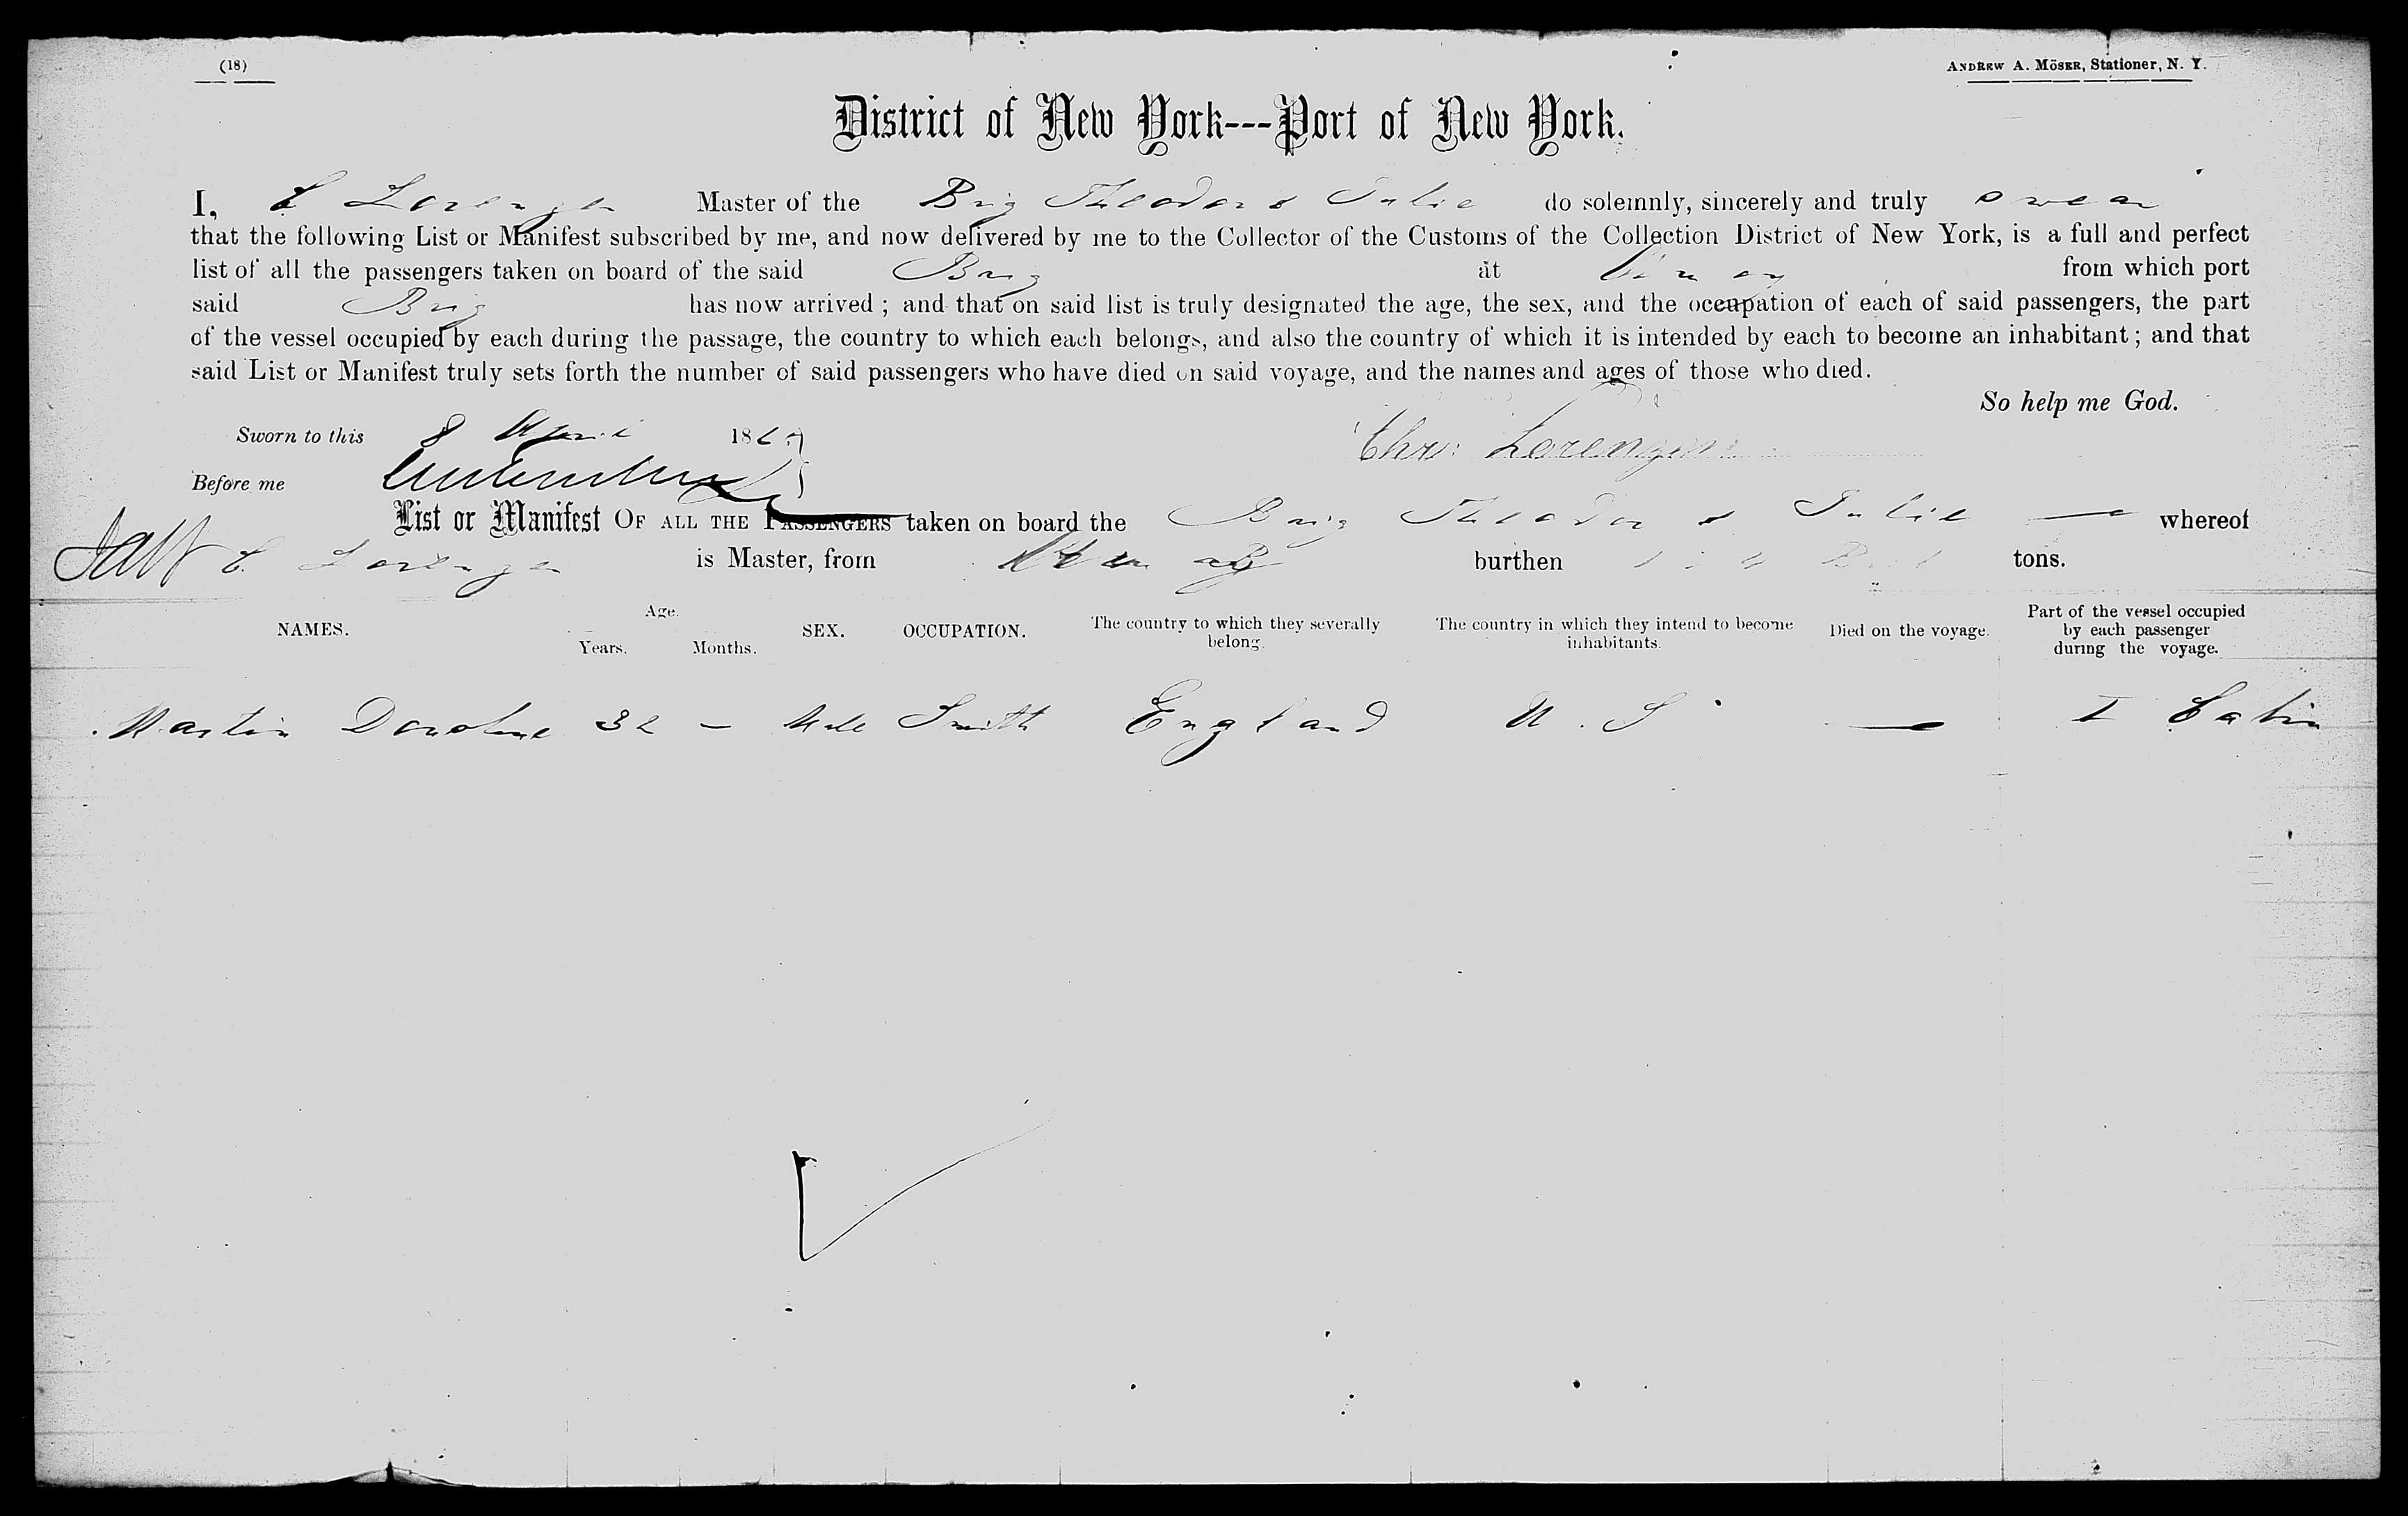 (18)
ANDREW A. MÖSER, Stationer, N. Y.
District of New York---Port of New York.
I, C Lorenzen Master of the Brig Theodor & Julie do solemnly, sincerely and truly swear
that the following List or Manifest subscribed by me, and now delivered by me to the Collector of the Customs of the Collection District of New York, is a full and perfect
list of all the passengers taken on board of the said Brig at from which port
said Brig has now arrived ; and that on said list is truly designated the age, the sex, and the occupation of each of said passengers, the part
of the vessel occupied by each during the passage, the country to which each belongs, and also the country of which it is intended by each to become an inhabitant ; and that
said List or Manifest truly sets forth the number of said passengers who have died on said voyage, and the names and ages of those who died.
So help me God.
Sworn to this 8 April 186
Chr: Lorenzen
Before me
List or Manifest OF ALL THE PASSENGERS taken on board the Brig Theodor & Julie — whereof
C. Lorenzen is Master, from burthen tons.
NAMES.
Age.
Years. Months.
SEX.
OCCUPATION.
The country to which they severally belong.
The country in which they intend to become inhabitants.
Died on the voyage.
Part of the vessel occupied by each passenger during the voyage.
Martin 32 — Male Smith England U. S — I Cabin